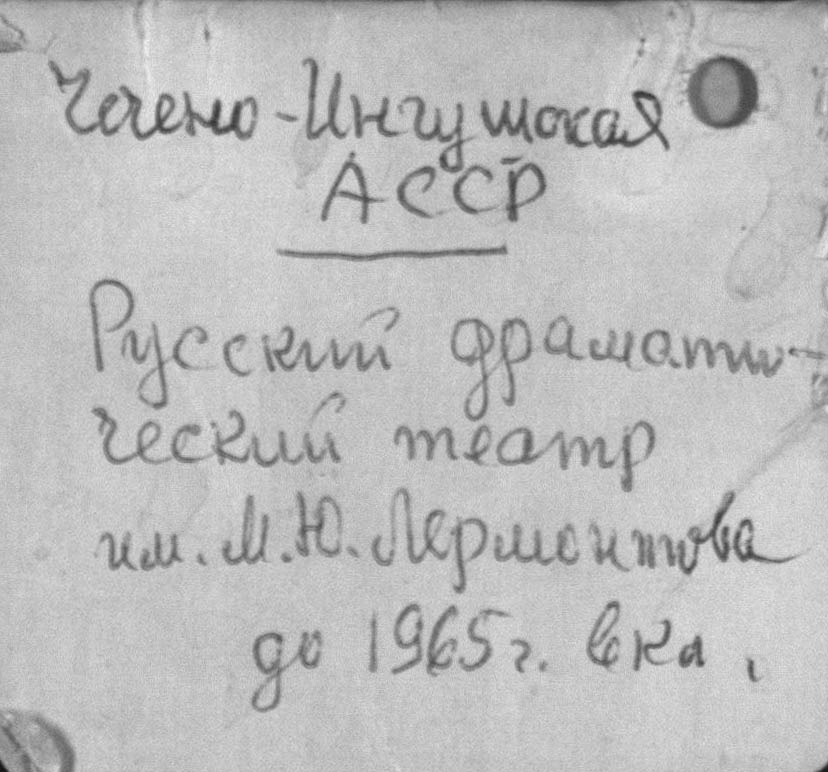 Чечено-Ингушская
АССР
Русский драмати-
ческий театр
им. М.Ю. Лермонтова
до 1965 г. вкл.